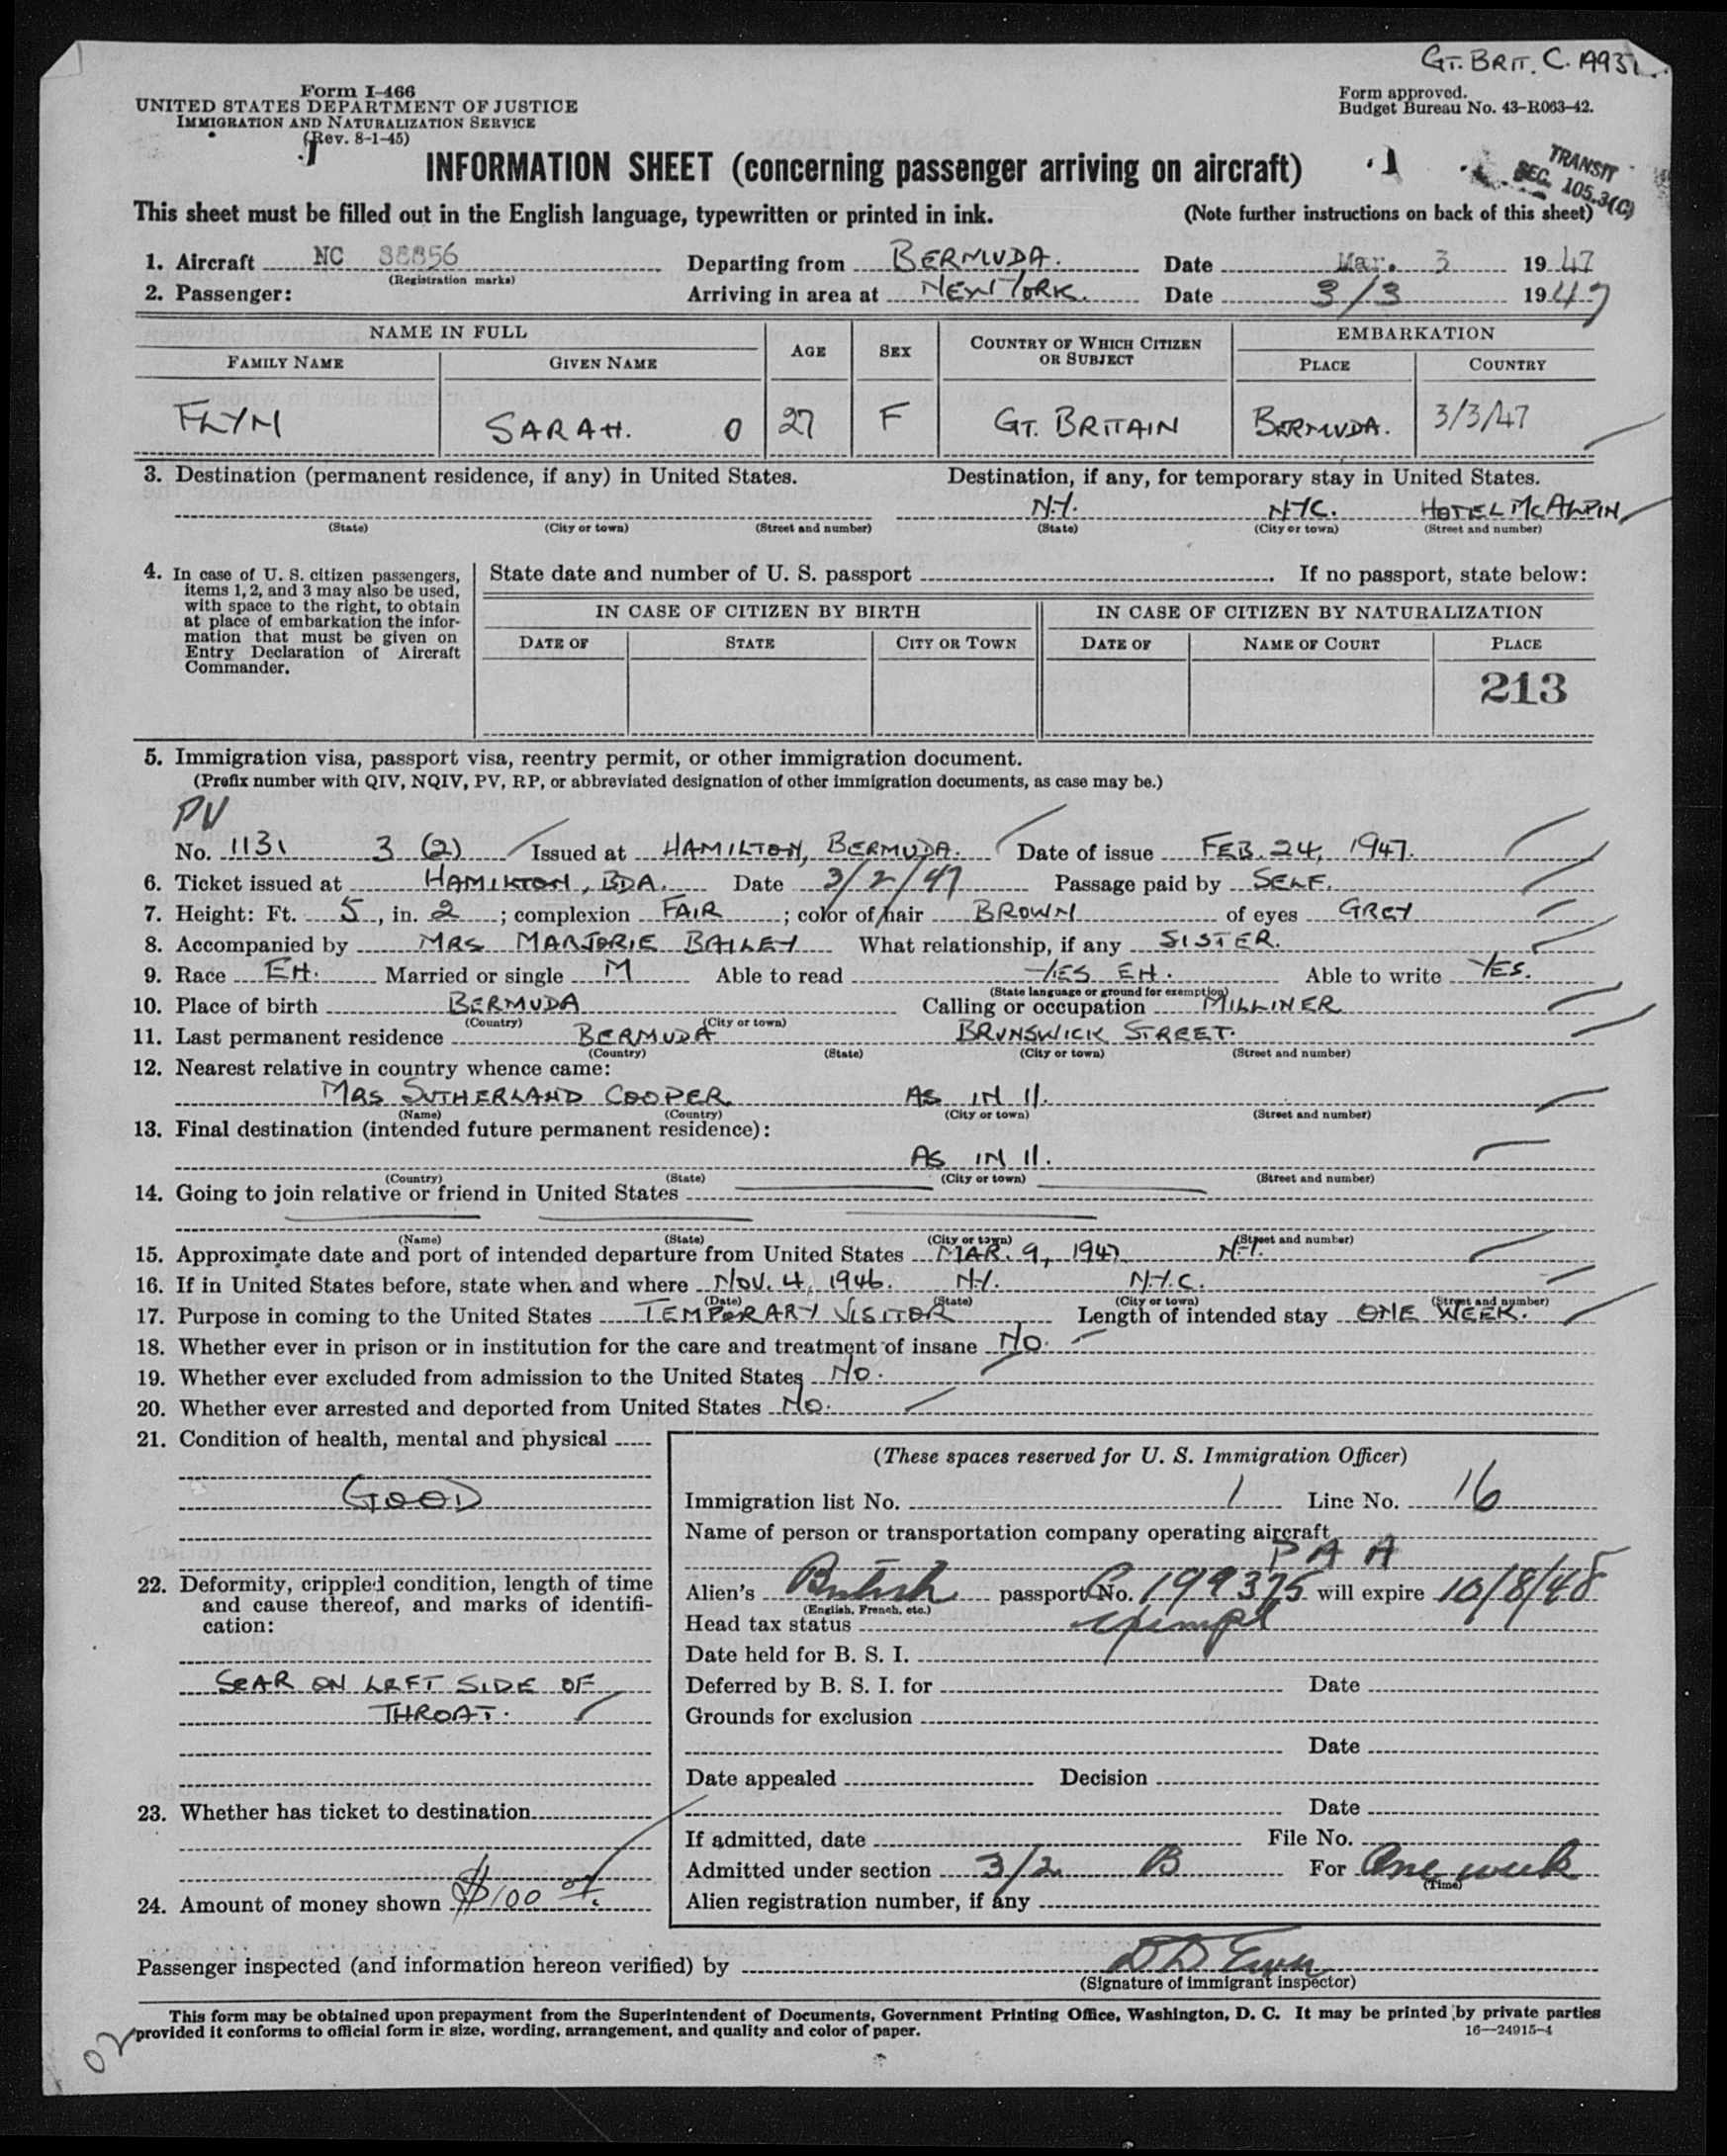 GT. BRIT. C. 19931
Form I-466
UNITED STATES DEPARTMENT OF JUSTICE
IMMIGRATION AND NATURALIZATION SERVICE
(Rev. 8-1-45)
Form approved.
Budget Bureau No. 43-R063-42.
INFORMATION SHEET (concerning passenger arriving on aircraft)
TRANSIT
SEC. 105.3(C)
This sheet must be filled out in the English language, typewritten or printed in ink. (Note further instructions on back of this sheet)
1. Aircraft NC 88856 Departing from BERMUDA. Date Mar. 3 1947
(Registration marks)
2. Passenger: Arriving in area at NEW YORK. Date 3/3 1947
NAME IN FULL AGE SEX COUNTRY OF WHICH CITIZEN OR SUBJECT EMBARKATION
FAMILY NAME GIVEN NAME PLACE COUNTRY
FLYN SARAH. O 27 F GT. BRITAIN BERMUDA. 3/3/47
3. Destination (permanent residence, if any) in United States. Destination, if any, for temporary stay in United States.
N.Y. NYC. HOTEL MCALPIN
(State) (City or town) (Street and number) (State) (City or town) (Street and number)
4. In case of U. S. citizen passengers, items 1, 2, and 3 may also be used, with space to the right, to obtain at place of embarkation the information that must be given on Entry Declaration of Aircraft Commander.
State date and number of U. S. passport . If no passport, state below:
IN CASE OF CITIZEN BY BIRTH IN CASE OF CITIZEN BY NATURALIZATION
DATE OF STATE CITY OR TOWN DATE OF NAME OF COURT PLACE
213
5. Immigration visa, passport visa, reentry permit, or other immigration document.
(Prefix number with QIV, NQIV, PV, RP, or abbreviated designation of other immigration documents, as case may be.)
PV
No. 1131 3 (2) Issued at HAMILTON, BERMUDA. Date of issue FEB. 24, 1947.
6. Ticket issued at HAMILTON, BDA. Date 3/2/47 Passage paid by SELF.
7. Height: Ft. 5, in. 2; complexion FAIR; color of hair BROWN of eyes GREY
8. Accompanied by MRS MARJORIE BAILEY What relationship, if any SISTER.
9. Race EH. Married or single M Able to read YES EH. Able to write YES.
(State language or ground for exemption)
10. Place of birth BERMUDA Calling or occupation MILLINER
(Country) (City or town)
11. Last permanent residence BERMUDA BRUNSWICK STREET.
(Country) (State) (City or town) (Street and number)
12. Nearest relative in country whence came:
MRS SUTHERLAND COOPER AS IN 11.
(Name) (Country) (City or town) (Street and number)
13. Final destination (intended future permanent residence):
AS IN 11.
(Country) (State) (City or town) (Street and number)
14. Going to join relative or friend in United States
(Name) (State) (City or town) (Street and number)
15. Approximate date and port of intended departure from United States MAR. 9, 1947 N.Y.
16. If in United States before, state when and where NOV. 4, 1946. N.Y. N.Y.C.
(Date) (State) (City or town) (Street and number)
17. Purpose in coming to the United States TEMPORARY VISITOR Length of intended stay ONE WEEK.
18. Whether ever in prison or in institution for the care and treatment of insane NO.
19. Whether ever excluded from admission to the United States NO.
20. Whether ever arrested and deported from United States NO.
21. Condition of health, mental and physical
GOOD
22. Deformity, crippled condition, length of time and cause thereof, and marks of identification:
SCAR ON LEFT SIDE OF
THROAT.
23. Whether has ticket to destination
24. Amount of money shown $100
(These spaces reserved for U. S. Immigration Officer)
Immigration list No. 1 Line No. 16
Name of person or transportation company operating aircraft
PAA
Alien's British passport No. C 199375 will expire 10/8/48
(English, French, etc.)
Head tax status exempt
Date held for B. S. I.
Deferred by B. S. I. for Date
Grounds for exclusion
Date
Date appealed Decision
Date
If admitted, date File No.
Admitted under section 3/2 B For One week
(Time)
Alien registration number, if any
Passenger inspected (and information hereon verified) by
(Signature of immigrant inspector)
This form may be obtained upon prepayment from the Superintendent of Documents, Government Printing Office, Washington, D. C. It may be printed by private parties
provided it conforms to official form in size, wording, arrangement, and quality and color of paper. 16—24915-4